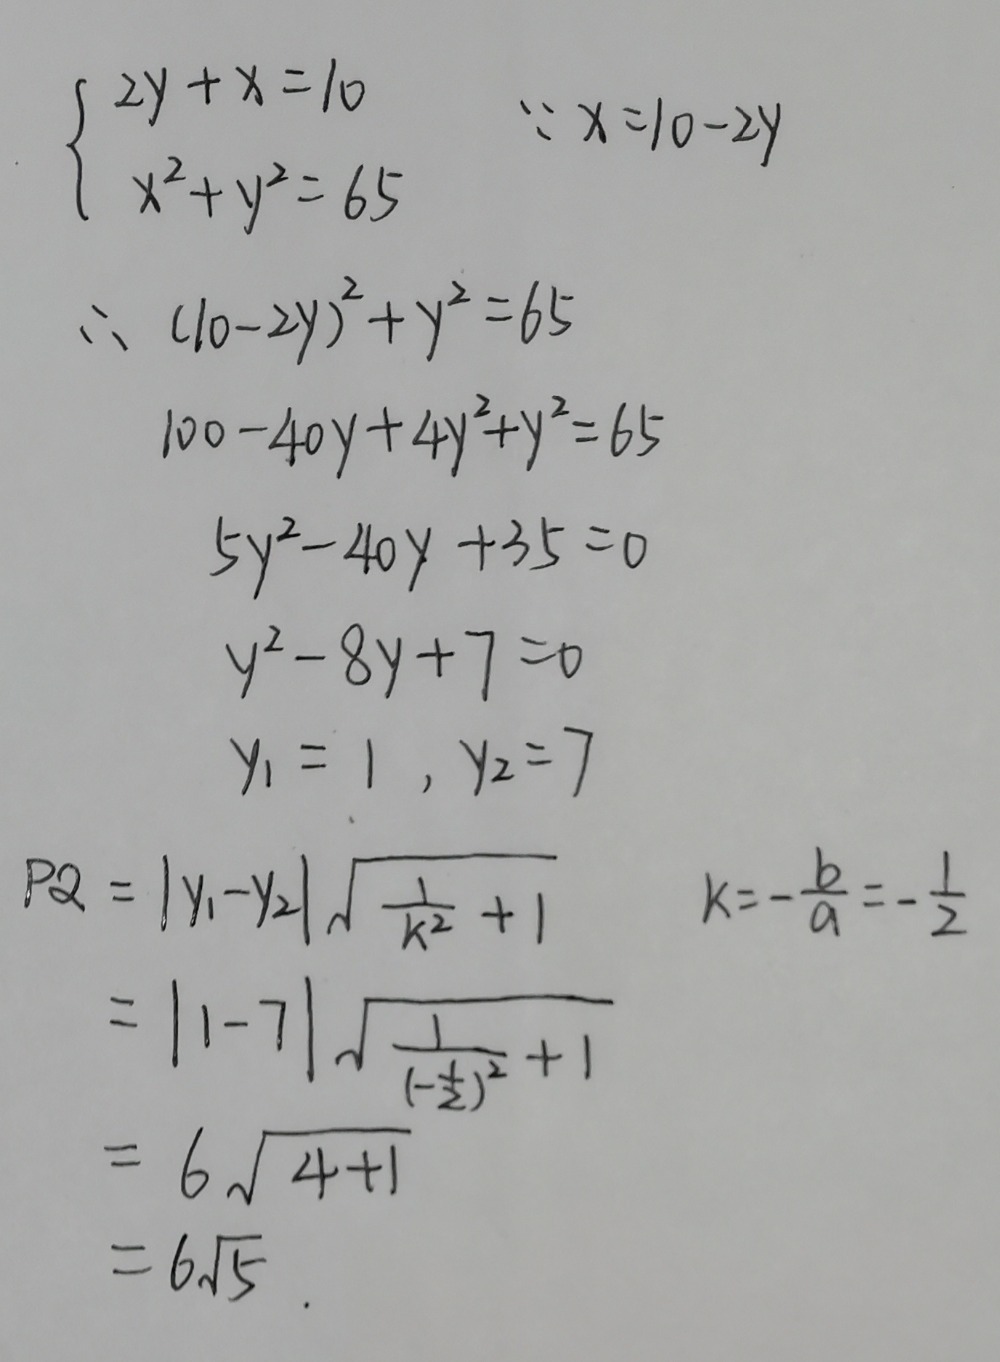 { 2y + x = 10
x² + y² = 65
∵ x = 10 - 2y
∴ (10 - 2y)² + y² = 65
100 - 40y + 4y² + y² = 65
5y² - 40y + 35 = 0
y² - 8y + 7 = 0
y₁ = 1 , y₂ = 7
PQ = |y₁ - y₂| √(1/k² + 1)
k = -b/a = -1/2
= |1 - 7| √(1/(-1/2)² + 1)
= 6√(4+1)
= 6√5 .